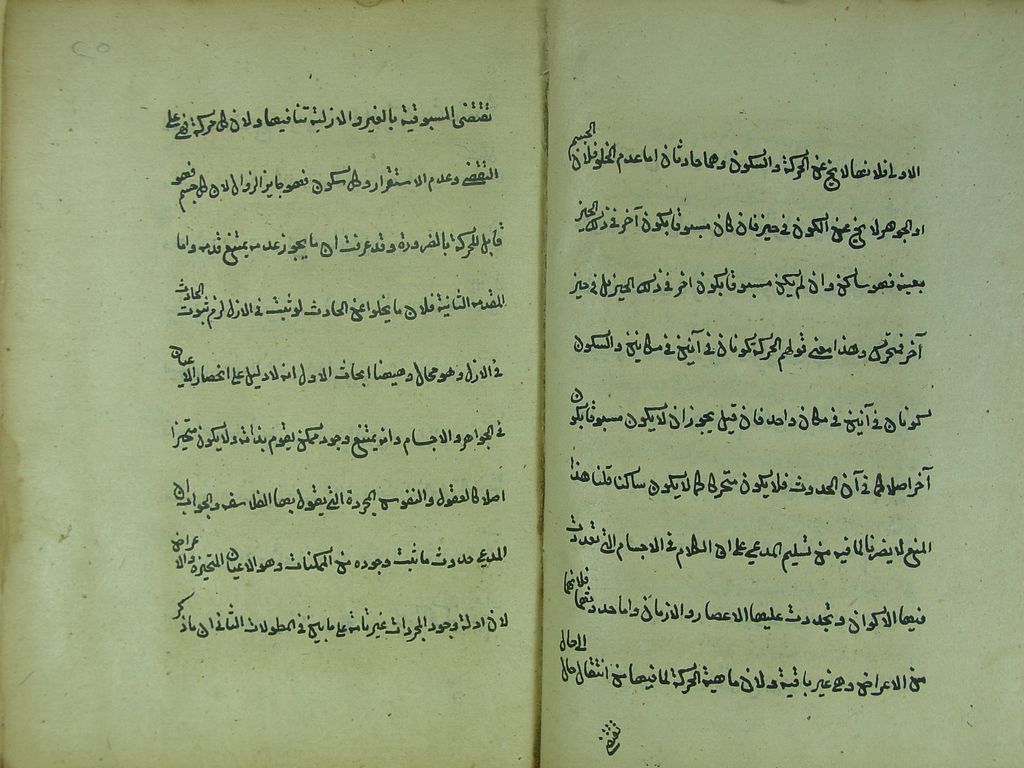 الاولى فلانها لا يخ عن الحركة والسكون وهما حادثان اما عدم الخلو فلان الجسم
او الجوهر لا يخ عن الكون في حيز فان كان مسبوقا بكون آخر في ذلك الحيز
بعينه فهو ساكن وان لم يكن مسبوقا بكون اخر في ذلك الحيز بل في حيز
آخر فمتحرك وهذا معنى قولهم الحركة كونان في آنين في مكانين والسكون
كونان في آنين في مكان واحد فان قيل يجوز ان لا يكون مسبوقا بكون
آخر اصلا كما في آن الحدوث فلا يكون متحركا كما لا يكون ساكنا قلنا هذا
المنع لا يضرنا لما فيه من تسليم المدعي على ان الكلام في الاجسام التي تعددت
فيها الاكوان وتجددت عليها الاعصار والازمان واما حدوثهما فلانهما
من الاعراض وهي غير باقية ولان ماهية الحركة لما فيها من انتقال حال الى حال
تقتضى
تقتضى المسبوقية بالغير والازلية تنافيها ولان كل حركة فهي على
التقضي وعدم الاستقرار وكل سكون فهو جايز الزوال لان كل جسم فهو
قابل للحركة بالضرورة وقد عرفت ان ما يجوز عدمه يمتنع قدمه واما
المقدمة الثانية فلان ما يخلوا عن الحادث لو ثبت في الازل لزم ثبوت الحادث
في الازل وهو محال وههنا ابحاث الاول انه لا دليل على انحصار الاعيان
في الجواهر والاجسام وانه يمتنع وجود ممكن يقوم بذاته ولا يكون متحيزا
اصلا كالعقول والنفوس المجردة التي يقول بها الفلاسفه والجواب ان
المدعي حدوث ما ثبت وجوده من الممكنات وهو الاعيان المتحيزة والاعراض
لان ادلة وجود المجردات غير تامة على ما بين في المطولات الثاني ان ما ذكر